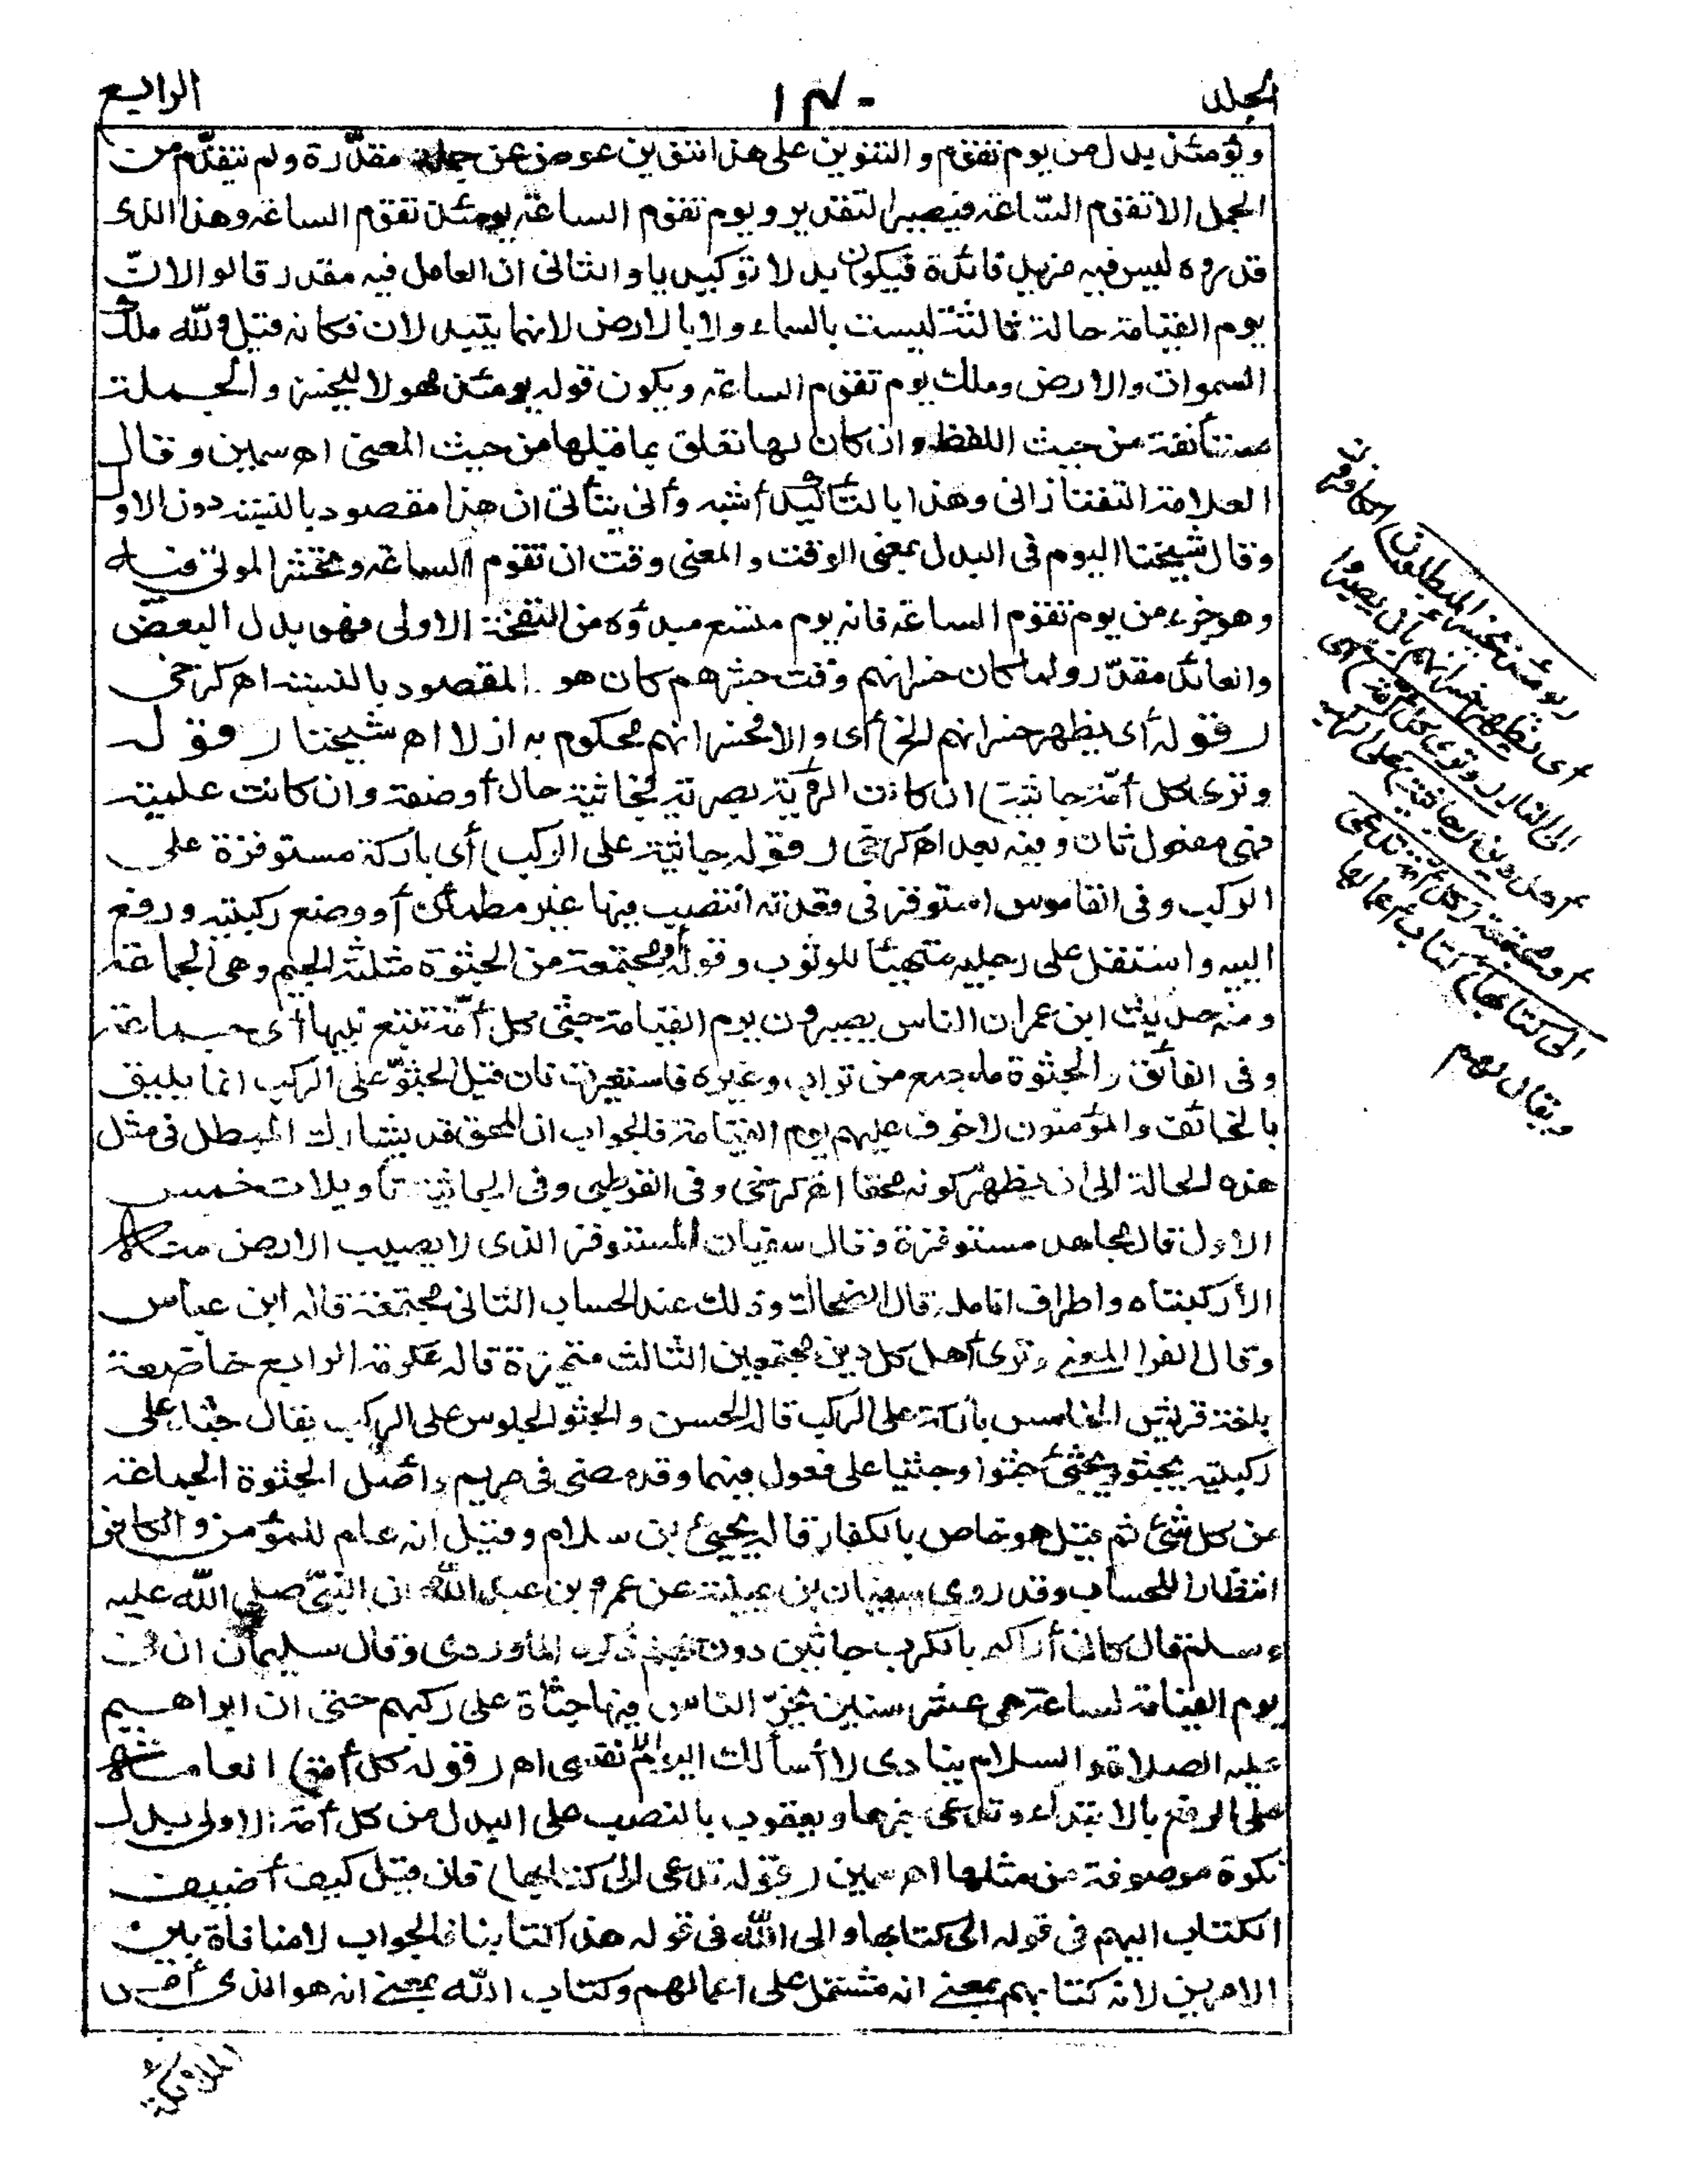 المجلد
١٣٠
الرابع
ويومئذ بدل من يوم تقوم والتنوين على هذا تنوين عوض عن جملة مقدّرة ولم يتقدّم من
الجمل الا تقوم السّاعة فيصير التقدير ويوم تقوم الساعة يومئذ تقوم الساعة وهذا الذى
قدروه ليس فيه مزيد فائدة فيكون بدلا توكيديا والثانى ان العامل فيه مقدر قالوا لان
يوم القيامة حالة ثالثة ليست بالسماء ولا بالارض لانهما يتبدلان فكانه قيل ولله ملك
السموات والارض وملك يوم تقوم الساعة ويكون قوله يومئذ معمولا ليخسر والجملة
مستأنفة من حيث اللفظ وان كان لها تعلق بما قبلها من حيث المعنى اه سمين وقال
العلامة التفتازانى وهذا بالتأكيد أشبه وأنى يتأتى ان هذا مقصود بالنسبة دون الاول
وقال شيخنا اليوم فى البدل بمعنى الوقت والمعنى وقت ان تقوم الساعة وتحشر الموتى فيه
وهو جزء من يوم تقوم الساعة فانه يوم متسع مبدؤه من النفخة الاولى فهو بدل البعض
والعائد مقدّر ولما كان خسرانهم وقت حشرهم كان هو المقصود بالنسبة اه كرخى
(قوله أى يظهر خسرانهم الخ) أى والا فخسرانهم محكوم به ازلا اه شيخنا (قوله
وترى كل أمّة جاثية) ان كانت الرؤية بصرية فجاثية حال أو صفة وان كانت علمية
فهى مفعول ثان وفيه بعد اه كرخى (قوله جاثية على الركب) أى باركة مستوفزة على
الركب وفى القاموس استوفز فى قعدته انتصب فيها غير مطمئن أو وضع ركبتيه ورفع
اليه واستقل على رجليه متهيئا للوثوب وقوله أو مجتمعة من الجثوة مثلثة الجيم وهى الجماعة
ومنه حديث ابن عمر ان الناس يصيرون يوم القيامة جثى كل أمّة تتبع نبيها أى جماعة
وفى الفائق (الجثوة ما جمع من تراب وغيره فاستعيرت فان قيل الجثوّ على الركب انما يليق
بالخائف والمؤمنون لا خوف عليهم يوم القيامة فالجواب ان المحق قد يشارك المبطل فى مثل
هذه الحالة الى ان يظهر كونه محقا اه كرخى وفى القرطبى وفى الجاثية تأويلات خمس
الاول قال مجاهد مستوفزة وقال سفيان المستوفز الذى لا يصيب الارض منه
الا ركبتاه واطراف انامله قال الضحاك وذلك عند الحساب الثانى مجتمعة قاله ابن عباس
وقال الفرا المعنى وترى أهل كل دين مجتمعين الثالث متميزة قاله عكرمة الرابع خاضعة
بلغة قريش الخامس باركة على الركب قاله الحسن والجثو الجلوس على الركب يقال جثا على
ركبتيه يجثو ويجثى جثوا وجثيا على فعول فيهما وقد مضى فى مريم وأصل الجثوة الجماعة
من كل شئ ثم قيل هو خاص بالكفار قاله يحيى بن سلام وقيل انه عام للمؤمن والكافر
انتظارا للحساب وقد روى سفيان بن عيينة عن عمرو بن عبد الله ان النبىّ صلى الله عليه
وسلم قال كانى أراكم بالكوم جاثين دون جهنم ذكره الماوردى وقال سليمان ان فى
يوم القيامة لساعة هى عشر سنين يخرّ الناس فيها جثاة على ركبهم حتى ان ابراهيم
عليه الصلاة والسلام ينادى لا أسألك اليوم الا نفسى اه (قوله كل أمّة) العامة
على الرفع بالابتداء وتدعى خبرها ويعقوب بالنصب على البدل من كل أمّة الاولى بدل
نكرة موصوفة من مثلها اه سمين (قوله تدعى الى كتابها) فان قيل كيف أضيف
الكتاب اليهم فى قوله الى كتابها والى الله فى قوله هذا كتابنا فالجواب لا منافاة بين
الامرين لانه كتابهم بمعنى انه مشتمل على اعمالهم وكتاب الله بمعنى انه هو الذى أمر
الملائكة
(يومئذ يخسر المبطلون) الكافرون
أى يظهر خسرانهم بأن يصيروا
الى النار (وترى كل أمّة) أى
أهل دين (جاثية) على الركب
أو مجتمعة (كل أمّة تدعى
الى كتابها) كتاب أعمالها
ويقال لهم